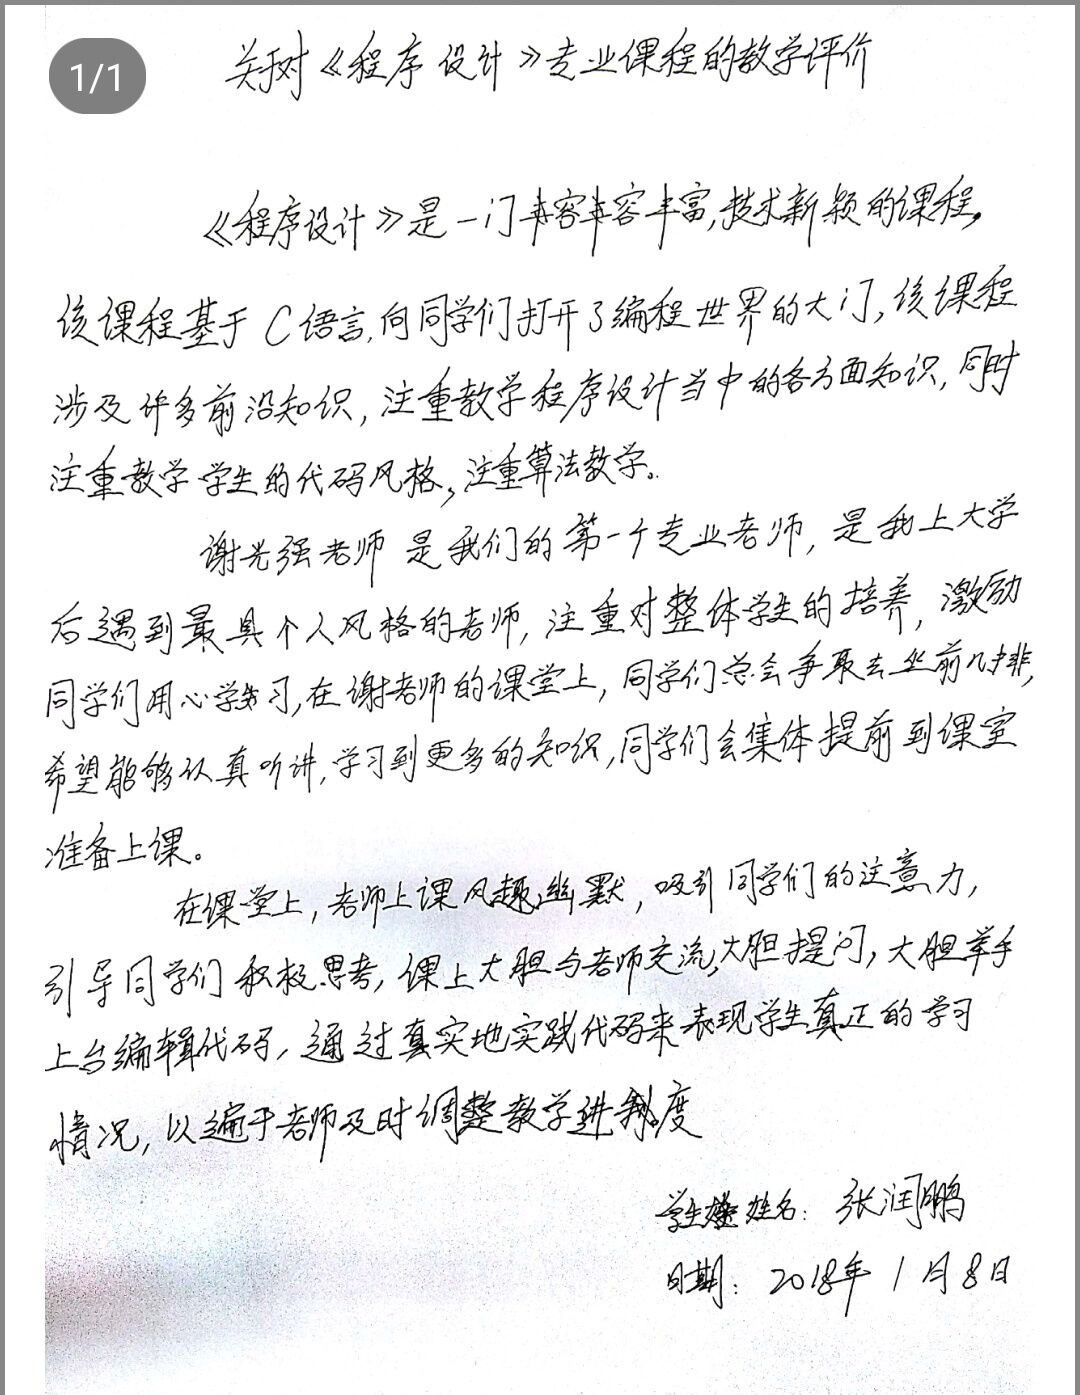 1/1
关于对《程序设计》专业课程的教学评价
《程序设计》是一门丰富,技术新颖的课程,
该课程基于C语言,向同学们打开了编程世界的大门,该课程
涉及许多前沿知识,注重教学程序设计当中的各方面知识,同时
注重教学学生的代码风格,注重算法教学。
谢光强老师是我们的第一个专业老师,是我上大学
后遇到最具个人风格的老师,注重对整体学生的培养,激励
同学们用心学习,在谢老师的课堂上,同学们总会争取去坐前几排,
希望能够认真听讲,学习到更多的知识,同学们会集体提前到课室
准备上课。
在课堂上,老师上课风趣幽默,吸引同学们的注意力,
引导同学们积极思考,课上大胆与老师交流,大胆提问,大胆举手
上台编辑代码,通过真实地实践代码来表现学生真正的学习
情况,以便于老师及时调整教学进度
学生姓名:张润鹏
日期:2018年1月8日